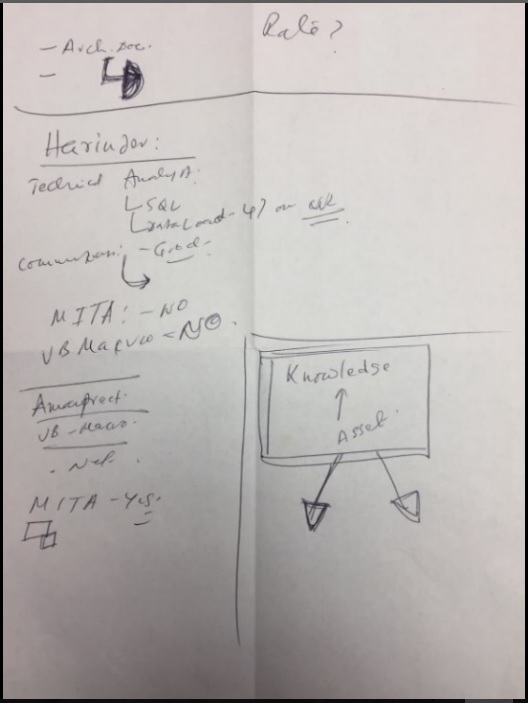 Rate?
- Arch. Doc.
-
Harinder:
Technical Analyst:
SQL
Data Load - 4) on
Communication: - Good -
MITA: - NO
VB Macro - NO.
Amanpreet.
VB - Macro.
. Net.
MITA - Yes.
Knowledge
Asset.